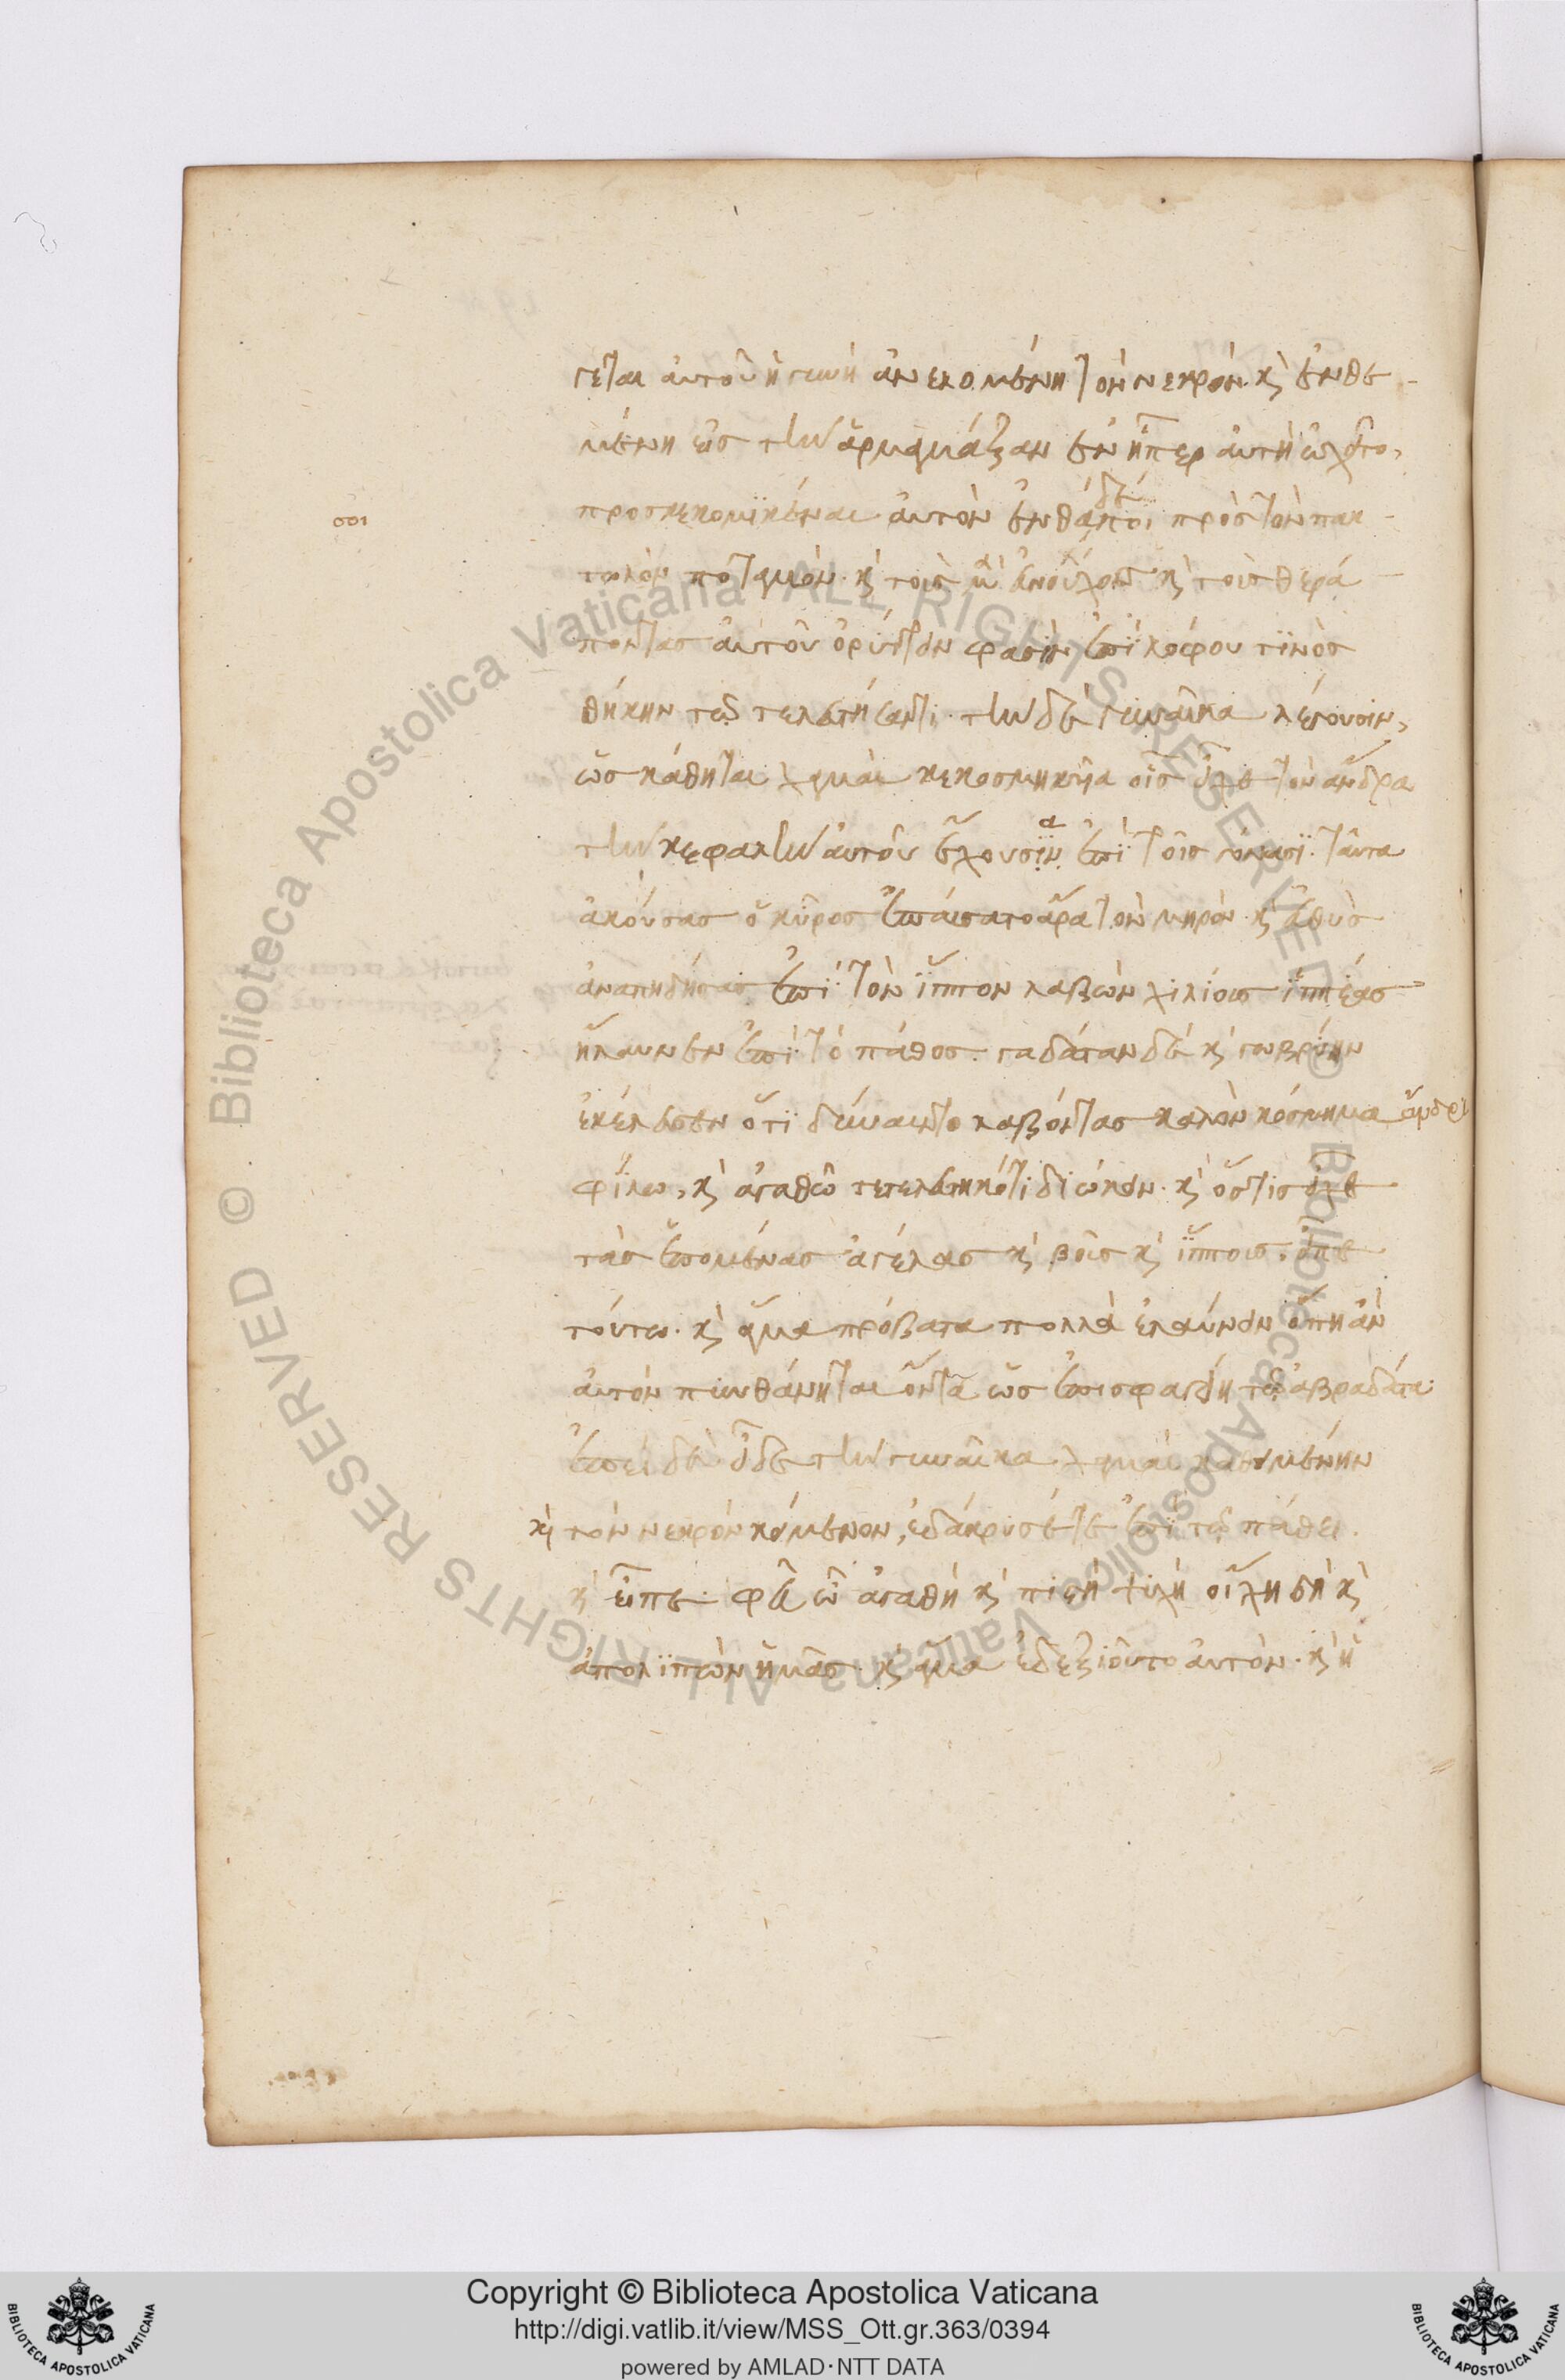 γεται αυτοῦ ἡ γυνὴ ἀνελομένη τὸν νεκρόν· κ ἐνθε-
μένη εἰς τὴν ἁρμαμάξαν ἐν ᾗπερ αὐτὴ ὠχεῖτο,
προσκεκομικέναι αὐτὸν ἐνθάδέ ποι πρὸς τὸν πακ-
τωλὸν ποταμόν· κ τοὺς μὲν εὐνούχους κ τοὺς θερά-
ποντας αὐτοῦ ὀρύττειν φασὶν ἐπὶ λόφου τινὸς
θήκην τῷ τελευτήσαντι· τὴν δὲ γυναῖκα λέγουσιν,
ὡς κάθηται χαμαὶ κεκοσμηκυῖα οἷς εἶχε τὸν ἄνδρα
τὴν κεφαλὴν αὐτοῦ ἔχουσαν ἐπὶ τοῖς γόνασι· ταῦτα
ἀκούσας ὁ κῦρος ἐπαίσατο ἄρα τὸν μηρόν· κ εὐθὺς
ἀναπηδήσας ἐπὶ τὸν ἵππον λαβὼν χιλίους ἱππέας
ἤλαυνεν ἐπὶ τὸ πάθος. γαδάταν δὲ κ γωβρύην
ἐκέλευσεν ὅτι δύναιντο λαβόντας καλὸν κόσμημα ἀνδρὶ
φίλω, κ ἀγαθῶ τετελευτηκότι διώκειν· κ ὅστις εἶχε
τὰς ἑπομένας ἀγέλας κ βοῦς κ ἵππους, εἶπε
τούτω· κ ἅμα πρόβατα πολλὰ ἐλαύνειν ὅπη ἂν
αὐτὸν πυνθάνηται ὄντα ὡς ἐπισφαγείη τῷ ἀβραδάτα·
ἐπεὶ δὲ εἶδε τὴν γυναῖκα χαμαὶ καθημένην
κ τὸν νεκρὸν κείμενον, ἐδάκρυσέ τε ἐπὶ τῷ πάθει.
κ εἶπε· φεῦ ὦ ἀγαθὴ κ πιστὴ ψυχὴ οἴχη δὴ κ
ἀπολιπὼν ἡμᾶς· κ ἅμα ἐδεξιοῦτο αὐτόν· κ ἡ
Copyright © Biblioteca Apostolica Vaticana
http://digi.vatlib.it/view/MSS_Ott.gr.363/0394
powered by AMLAD·NTT DATA
BIBLIOTECA APOSTOLICA VATICANA
BIBLIOTECA APOSTOLICA VATICANA
Biblioteca Apostolica Vaticana ALL RIGHTS RESERVED ©
Biblioteca Apostolica Vaticana ALL RIGHTS RESERVED ©